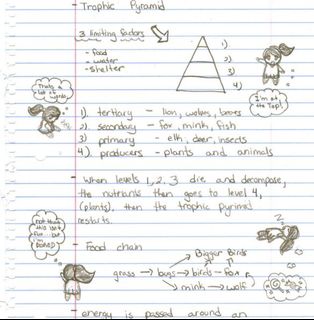 - Trophic Pyramid
3 limiting factors
- food
- water
- shelter
1).
2)
3)
4)
That's a lot of words
I'm at the Top!
1). tertiary - lion, wolves, bears
2) secondary - fox, mink, fish
3) primary - elk, deer, insects
4). producers - plants and animals
- When levels 1, 2, 3 die and decompose,
the nutrients then goes to level 4,
(plants), then the trophic pyrimid
restarts.
not that this isn't fun... but I'm BORED
- Food chain
Bigger Birds
grass → bugs → birds → fox
→ mink → wolf
energy is passed around an